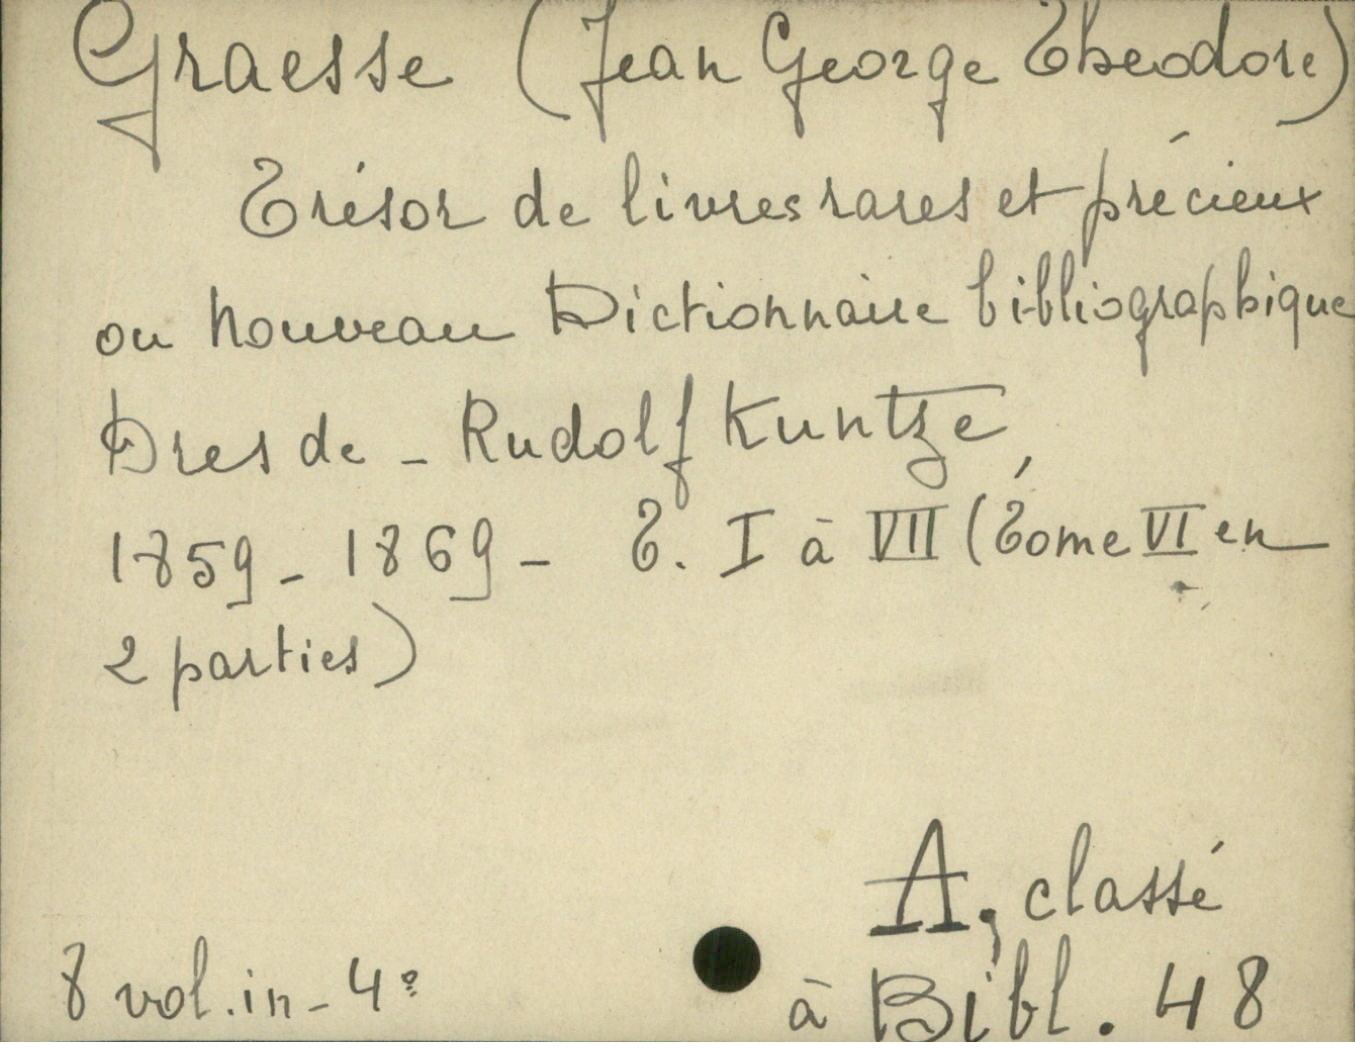 Graesse (Jean George Theodore)
Trésor de livres rares et précieux
ou nouveau Dictionnaire bibliographique
Dresde - Rudolf Kuntze,
1859-1869 - T. I à VII (Tome VI en
2 parties)
A, classé
8 vol. in-4º
à Bibl. 48